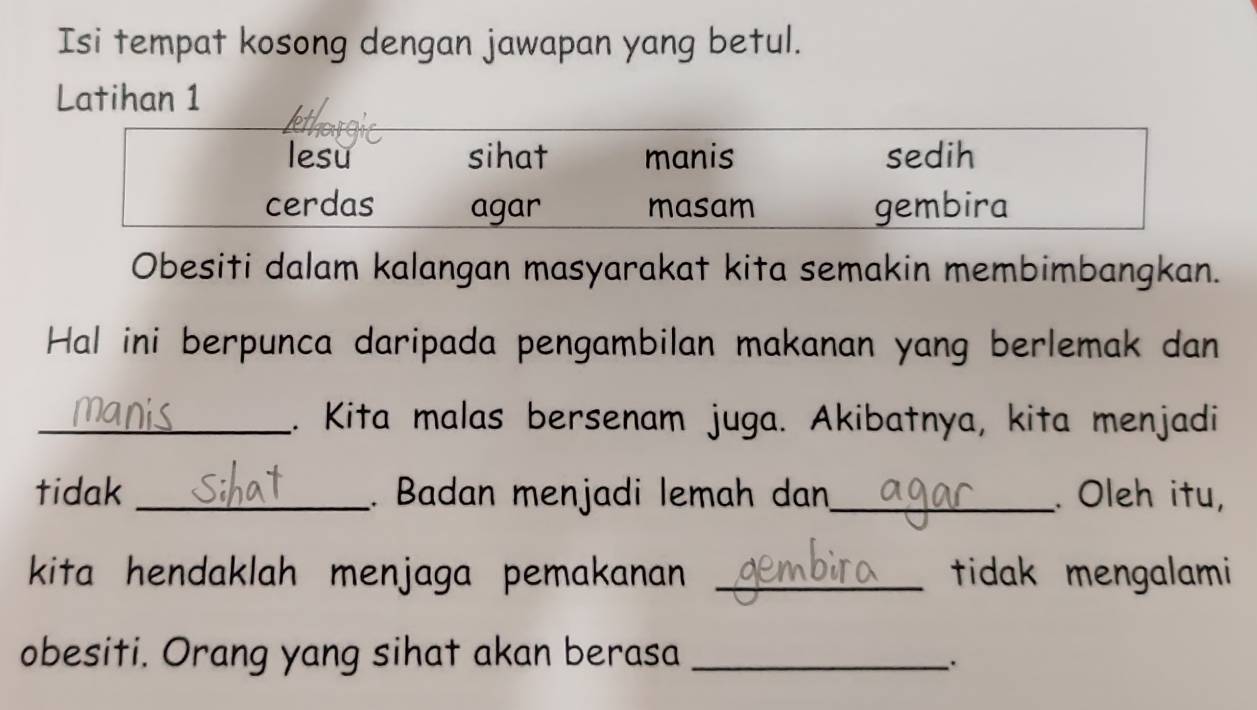 Isi tempat kosong dengan jawapan yang betul.
Latihan 1
lethargic
lesu sihat manis sedih
cerdas agar masam gembira
Obesiti dalam kalangan masyarakat kita semakin membimbangkan.
Hal ini berpunca daripada pengambilan makanan yang berlemak dan
manis. Kita malas bersenam juga. Akibatnya, kita menjadi
tidak sihat. Badan menjadi lemah dan agar. Oleh itu,
kita hendaklah menjaga pemakanan gembira tidak mengalami
obesiti. Orang yang sihat akan berasa ____________.